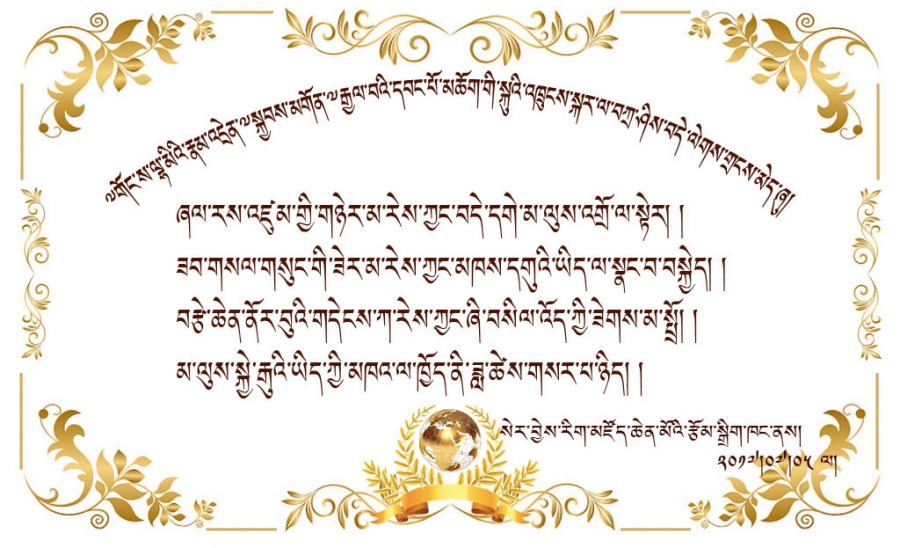 ༸གོང་ས་ལྷ་མིའི་རྣམ་འདྲེན་༸སྐྱབས་མགོན་༸རྒྱལ་བའི་དབང་པོ་མཆོག་གི་སྐུའི་འཁྲུངས་སྐར་ལ་བཀྲ་ཤིས་བདེ་ལེགས་གྲངས་མེད་ཞུ།
ཞལ་རས་འཛུམ་གྱི་གཉེར་མ་རེས་ཀྱང་བདེ་དགེ་མ་ལུས་འགྲོ་ལ་སྟེར། །
ཟབ་གསལ་གསུང་གི་ཟེར་མ་རེས་ཀྱང་མཁས་དགུའི་ཡིད་ལ་སྣང་བ་བསྐྱེད། །
བརྩེ་ཆེན་ནོར་བུའི་གདེངས་ཀ་རེས་ཀྱང་ཞི་བསིལ་འོད་ཀྱི་ཟེགས་མ་སྤྲོ། །
མ་ལུས་སྐྱེ་རྒུའི་ཡིད་ཀྱི་མཁའ་ལ་ཁྱོད་ནི་ཟླ་ཚེས་གསར་པ་ཉིད། །
སེར་བྱེས་རིག་མཛོད་ཆེན་མོའི་རྩོམ་སྒྲིག་ཁང་ནས།